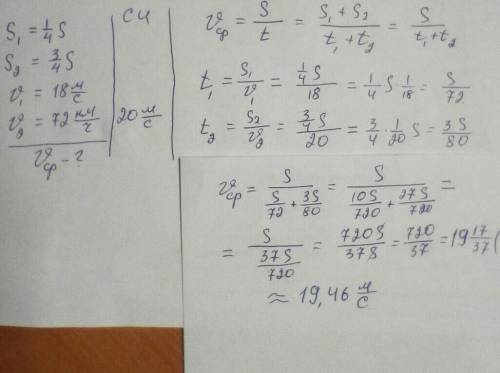 СИ
S₁ = 1/4 S
S₂ = 3/4 S
v₁ = 18 м/с
v₂ = 72 км/ч 20 м/с
vср - ?
vср = S/t = (S₁ + S₂)/(t₁ + t₂) = S/(t₁ + t₂)
t₁ = S₁/v₁ = (1/4 S)/18 = 1/4 S · 1/18 = S/72
t₂ = S₂/v₂ = (3/4 S)/20 = 3/4 · 1/20 S = 3S/80
vср = S/(S/72 + 3S/80) = S/(10S/720 + 27S/720) =
= S/(37S/720) = 720S/37S = 720/37 = 19 17/37 (
≈ 19,46 м/с